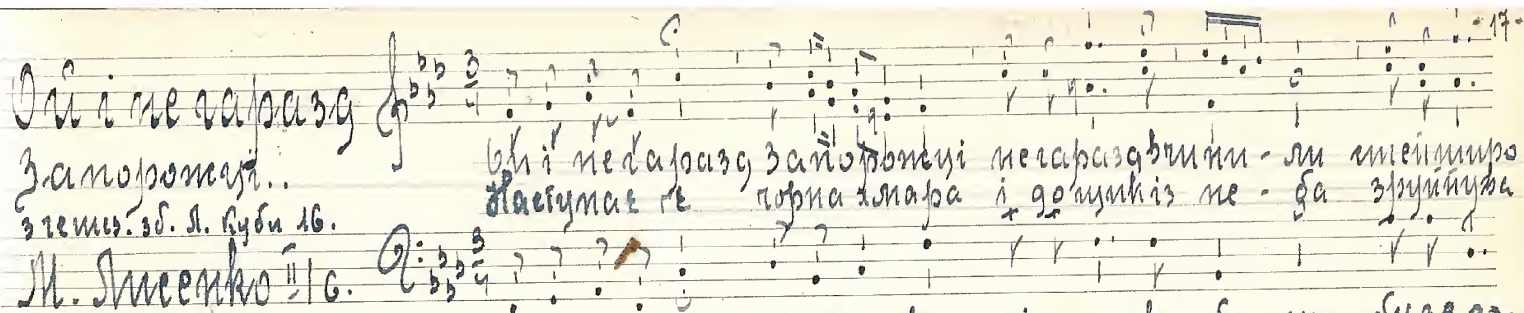 -17-
Ой і негаразд
Запорожці..
з чешсь. зб. Л. Куби 16.
М. Лисенко II/6.
3/4
Ой і негаразд запорожці негаразд вчини-ли степ широ
Наступає чорна хмара і дощик із не-ба зруйнува
3/4